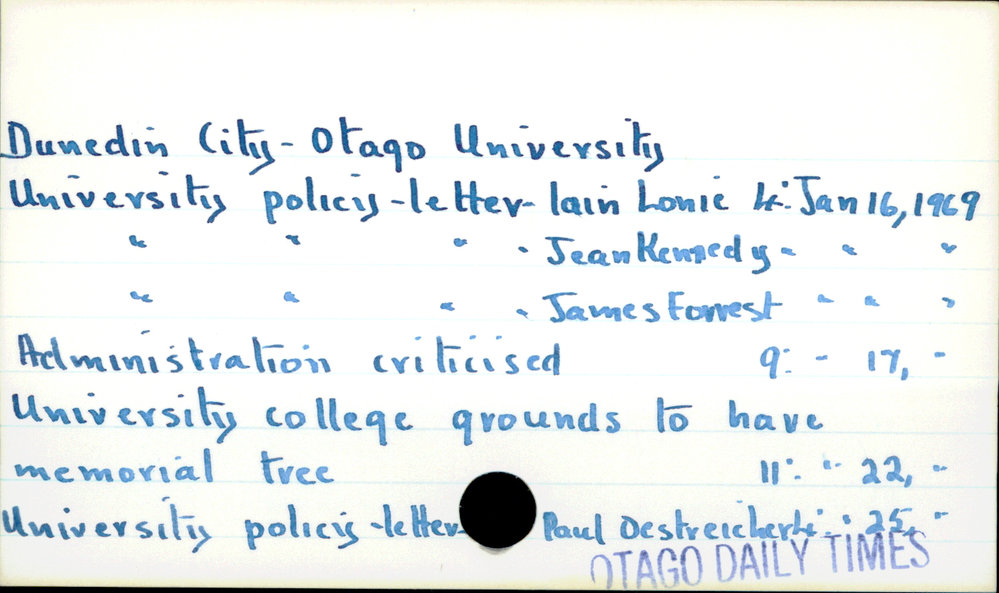 Dunedin City - Otago University
University policy - letter - Iain Lonie 4: Jan 16, 1969
" " " " Jean Kennedy " " "
" " " " James Forrest " " "
Administration criticised 9: - 17, "
University college grounds to have
memorial tree 11: " 22, "
University policy - letter - Paul Oestreicher 4: " 25, "
OTAGO DAILY TIMES